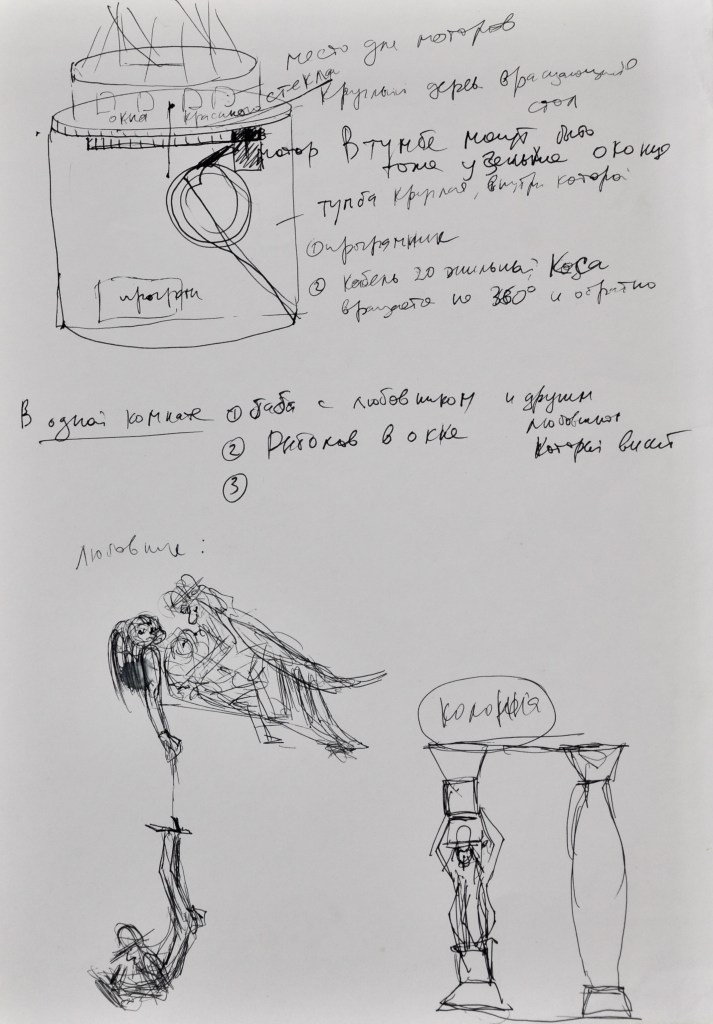 место для моторов
стекла
Круглый дерев вращающийся
стол
окна
красного
мотор
В тумбе могут быть
тоже окна
тумба круглая, внутри которой
① програмник
② кабель 20 жильный, Коса
вращается на 360° и обратно
програм
В одной комнате ① баба с любовником и другим
любовник
который висит
② в окне
③
Любовница :
КОЛОННА